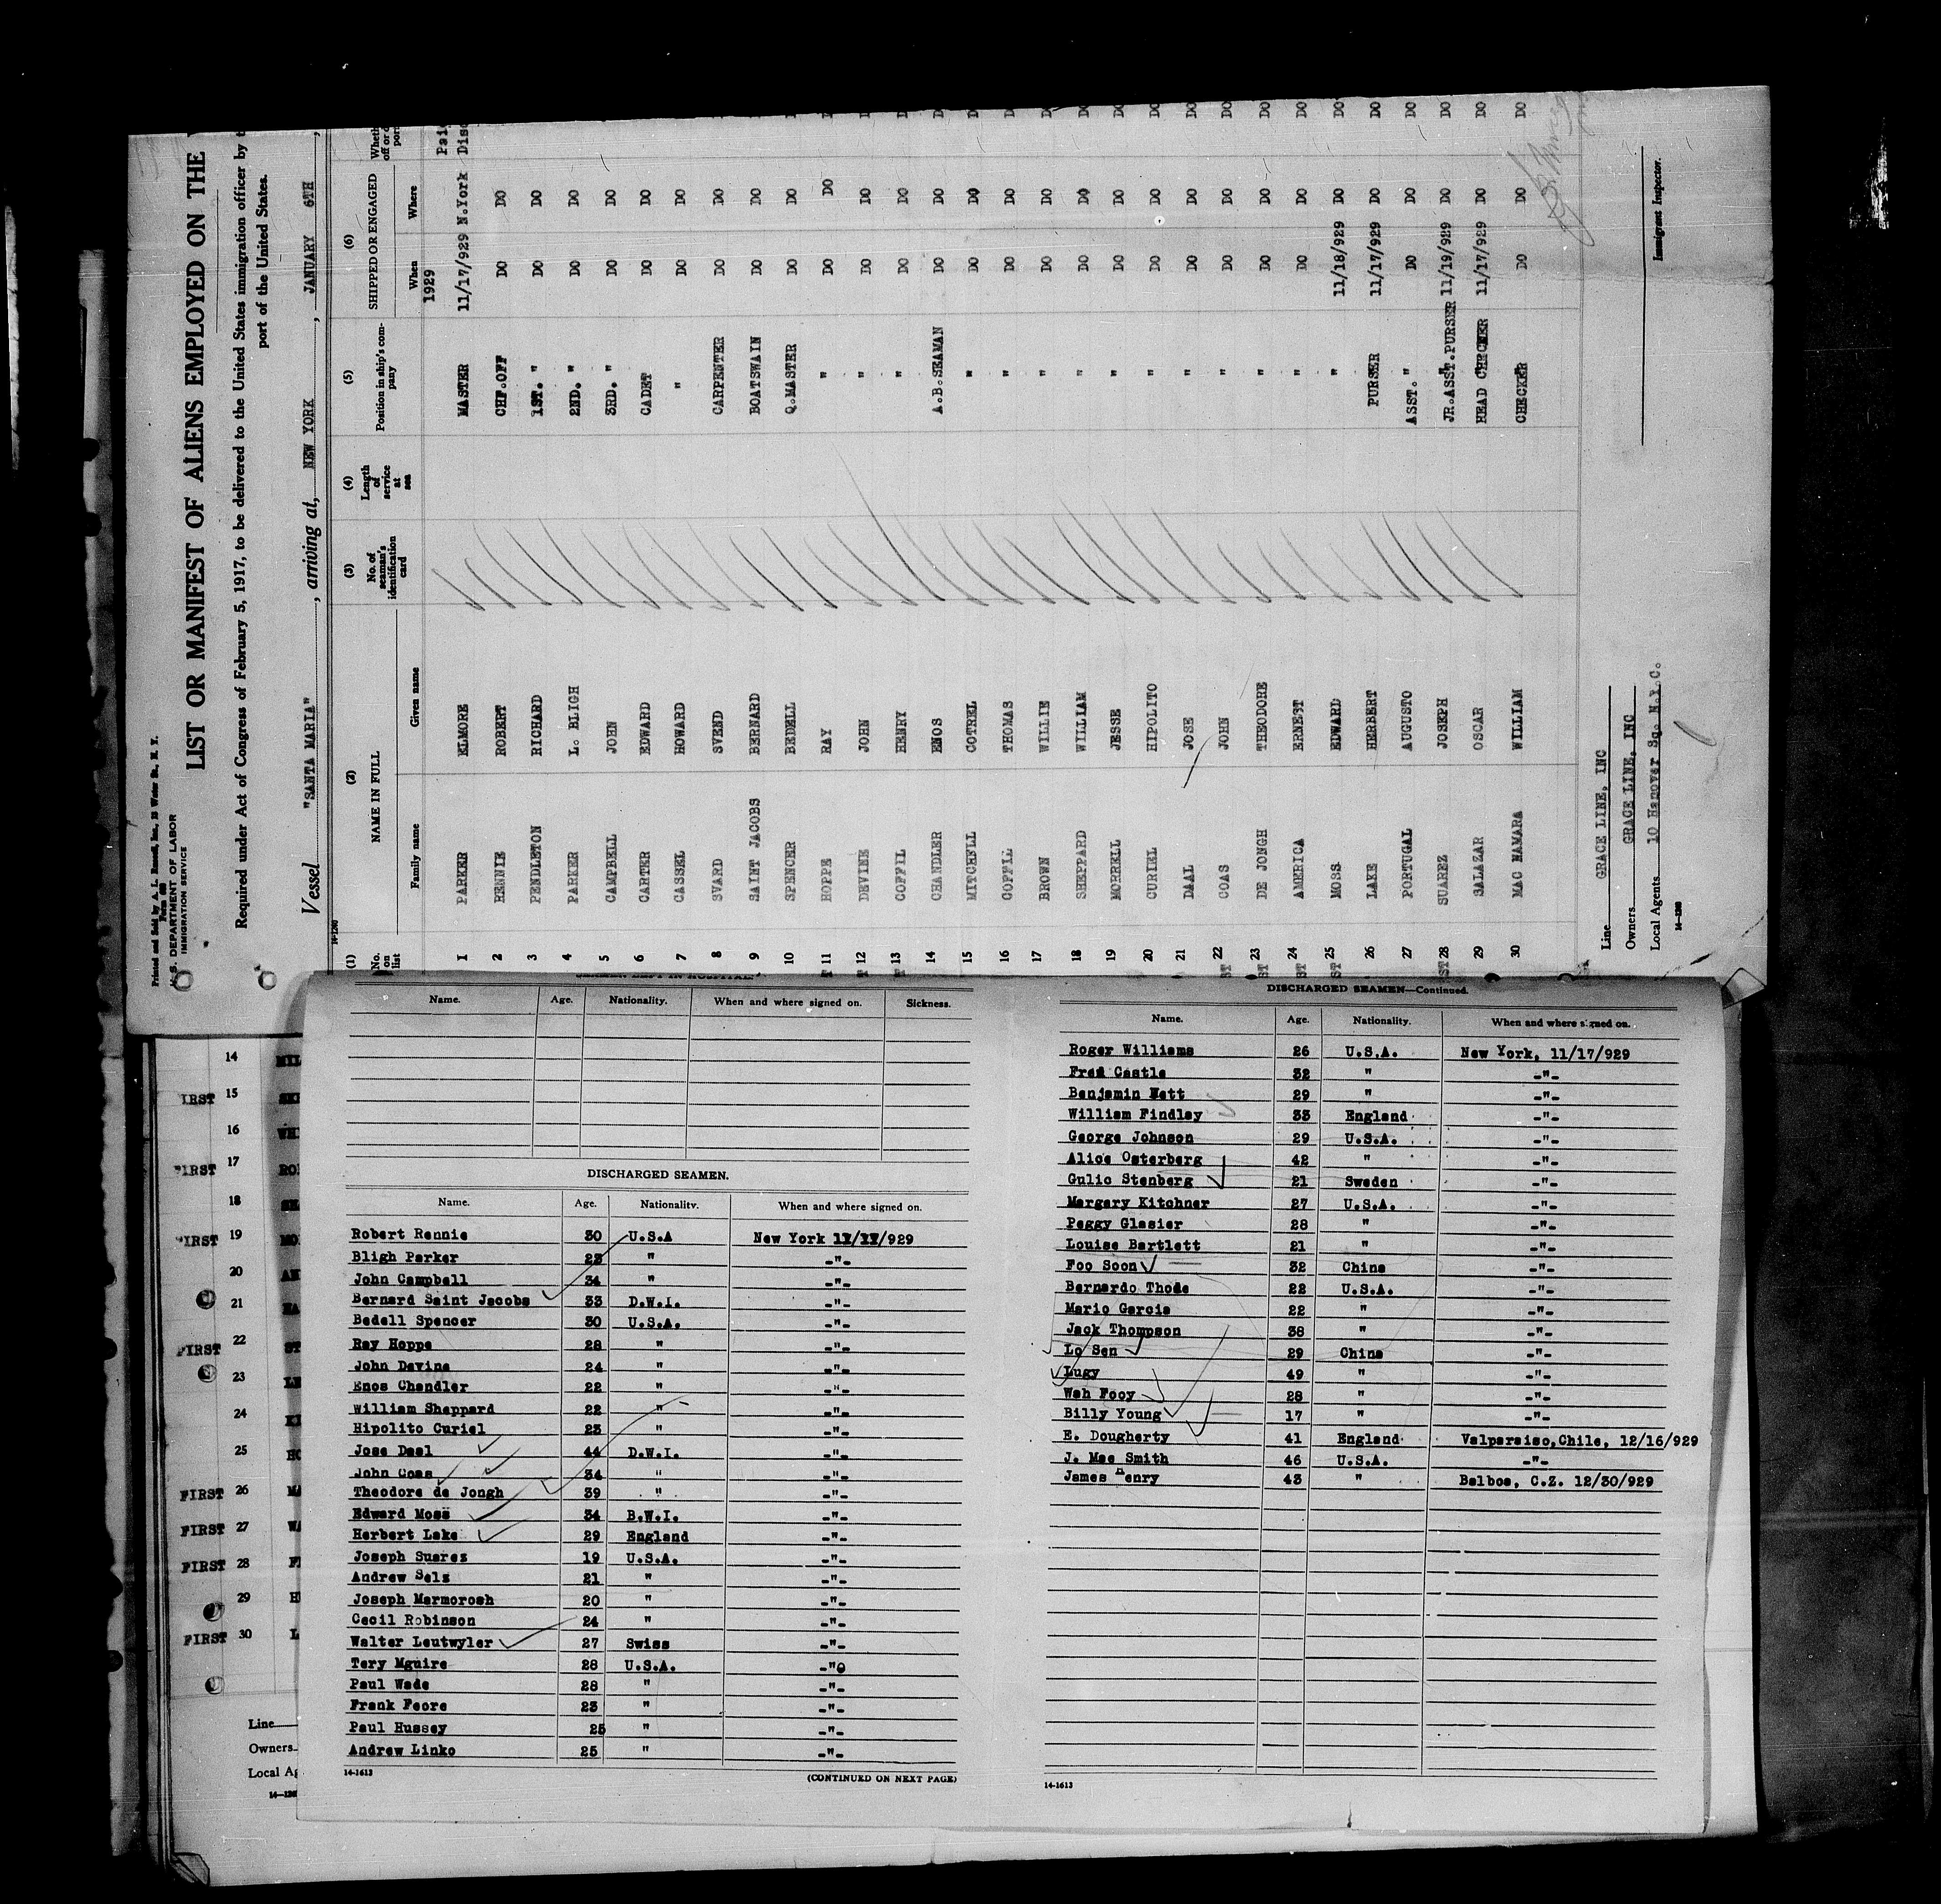 Printed and Sold by A. L. Russell, Inc., 15 Water St., N. Y.
Form 689
U.S. DEPARTMENT OF LABOR
IMMIGRATION SERVICE
LIST OR MANIFEST OF ALIENS EMPLOYED ON THE
Required under Act of Congress of February 5, 1917, to be delivered to the United States immigration officer by t
port of the United States.
Vessel "SANTA MARIA", arriving at, NEW YORK, JANUARY 6TH,
14-1240
(1) (2) (3) (4) (5) (6)
No. on list NAME IN FULL No. of seaman's identification card Length of service at sea Position in ship's company SHIPPED OR ENGAGED
Family name Given name When Where
1929 Pai
1 PARKER ELMORE MASTER 11/17/929 N.York Disc
2 RENNIE ROBERT CHF.OFF DO DO D
3 PENDLETON RICHARD 1ST. " DO DO D
4 PARKER L. BLIGH 2ND. " DO DO D
5 CAMPBELL JOHN 3RD. " DO DO D
6 CARTER EDWARD CADET DO DO D
7 CASSEL HOWARD " DO DO D
8 SVARD SVEND CARPENTER DO DO D
9 SAINT JACOBS BERNARD BOATSWAIN DO DO D
10 SPENCER BEDELL Q.MASTER DO DO D
11 HOPPE RAY " DO DO D
12 DEVINE JOHN " DO DO D
13 COFFIL HENRY " DO DO D
14 CHANDLER ENOS A.B.SEAMAN DO DO D
15 MITCHELL COTREL " DO DO D
16 COFFIL THOMAS " DO DO D
17 BROWN WILLIE " DO DO D
18 SHEPPARD WILLIAM " DO DO D
19 MORRELL JESSE " DO DO D
20 CURIEL HIPOLITO " DO DO DO
21 DAAL JOSE " DO DO DO
22 COAS JOHN " DO DO DO
23 DE JONGH THEODORE " DO DO DO
24 AMERICA ERNEST " DO DO DO
25 MOSS EDWARD " 11/18/929 DO DO
26 LAKE HERBERT PURSER 11/17/929 DO DO
27 PORTUGAL AUGUSTO ASST. " DO DO DO
28 SUAREZ JOSEPH JR.ASST.PURSER 11/19/929 DO DO
29 SALAZAR OSCAR HEAD CHECKER 11/17/929 DO DO
30 MAC NAMARA WILLIAM CHECKER DO DO DO
Line GRACE LINE, INC
Owners GRACE LINE, INC
Local Agents 10 Hanover Sq. N.Y.C.
14-1240
Immigrant Inspector.
14 MIL
IRST 15
16 WHI
FIRST 17 RO
18
FIRST 19 MO
20 AN
21 HA
FIRST 22 ST
23 LE
24 KI
25 HO
FIRST 26 MA
FIRST 27 WA
FIRST 28 F
29 H
FIRST 30 L
Line
Owners
Local Ag
SEAMEN LEFT IN HOSPITAL.
Name. Age. Nationality. When and where signed on. Sickness.
DISCHARGED SEAMEN.
Name. Age. Nationality. When and where signed on.
Robert Rennie 30 U.S.A New York 11/17/929
Bligh Parker 23 " -"-
John Campbell 34 " -"-
Bernard Saint Jacobs 33 D.W.I. -"-
Bedell Spencer 30 U.S.A. -"-
Ray Hoppe 28 " -"-
John Devine 24 " -"-
Enos Chandler 22 " -"-
William Sheppard 22 " -"-
Hipolito Curiel 23 " -"-
Jose Daal 44 D.W.I. -"-
John Coas 34 " -"-
Theodore de Jongh 39 " -"-
Edward Moss 34 B.W.I. -"-
Herbert Lake 29 England -"-
Joseph Suarez 19 U.S.A. -"-
Andrew Selz 21 " -"-
Joseph Marmorosh 20 " -"-
Cecil Robinson 24 " -"-
Walter Leutwyler 27 Swiss -"-
Tery Mguire 28 U.S.A. -"-
Paul Wade 28 " -"-
Frank Feore 23 " -"-
Paul Hussey 25 " -"-
Andrew Linko 25 " -"-
14-1613 (CONTINUED ON NEXT PAGE)
DISCHARGED SEAMEN—Continued.
Name. Age. Nationality. When and where signed on.
Roger Williams 26 U.S.A. New York, 11/17/929
Fred Castle 32 " -"-
Benjamin Nett 29 " -"-
William Findley 33 England -"-
George Johnson 29 U.S.A. -"-
Alice Osterberg 42 " -"-
Gulic Stenberg 21 Sweden -"-
Margary Kitchner 27 U.S.A. -"-
Peggy Glasier 28 " -"-
Louise Bartlett 21 " -"-
Foo Soon 32 China -"-
Bernardo Thode 22 U.S.A. -"-
Mario Garcia 22 " -"-
Jack Thompson 38 " -"-
Lo Sen 29 China -"-
Lugy 49 " -"-
Wah Fooy 28 " -"-
Billy Young 17 " -"-
E. Dougherty 41 England Valparaiso,Chile, 12/16/929
J. Mae Smith 46 U.S.A. -"-
James Henry 43 " Balboa, C.Z. 12/30/929
14-1613